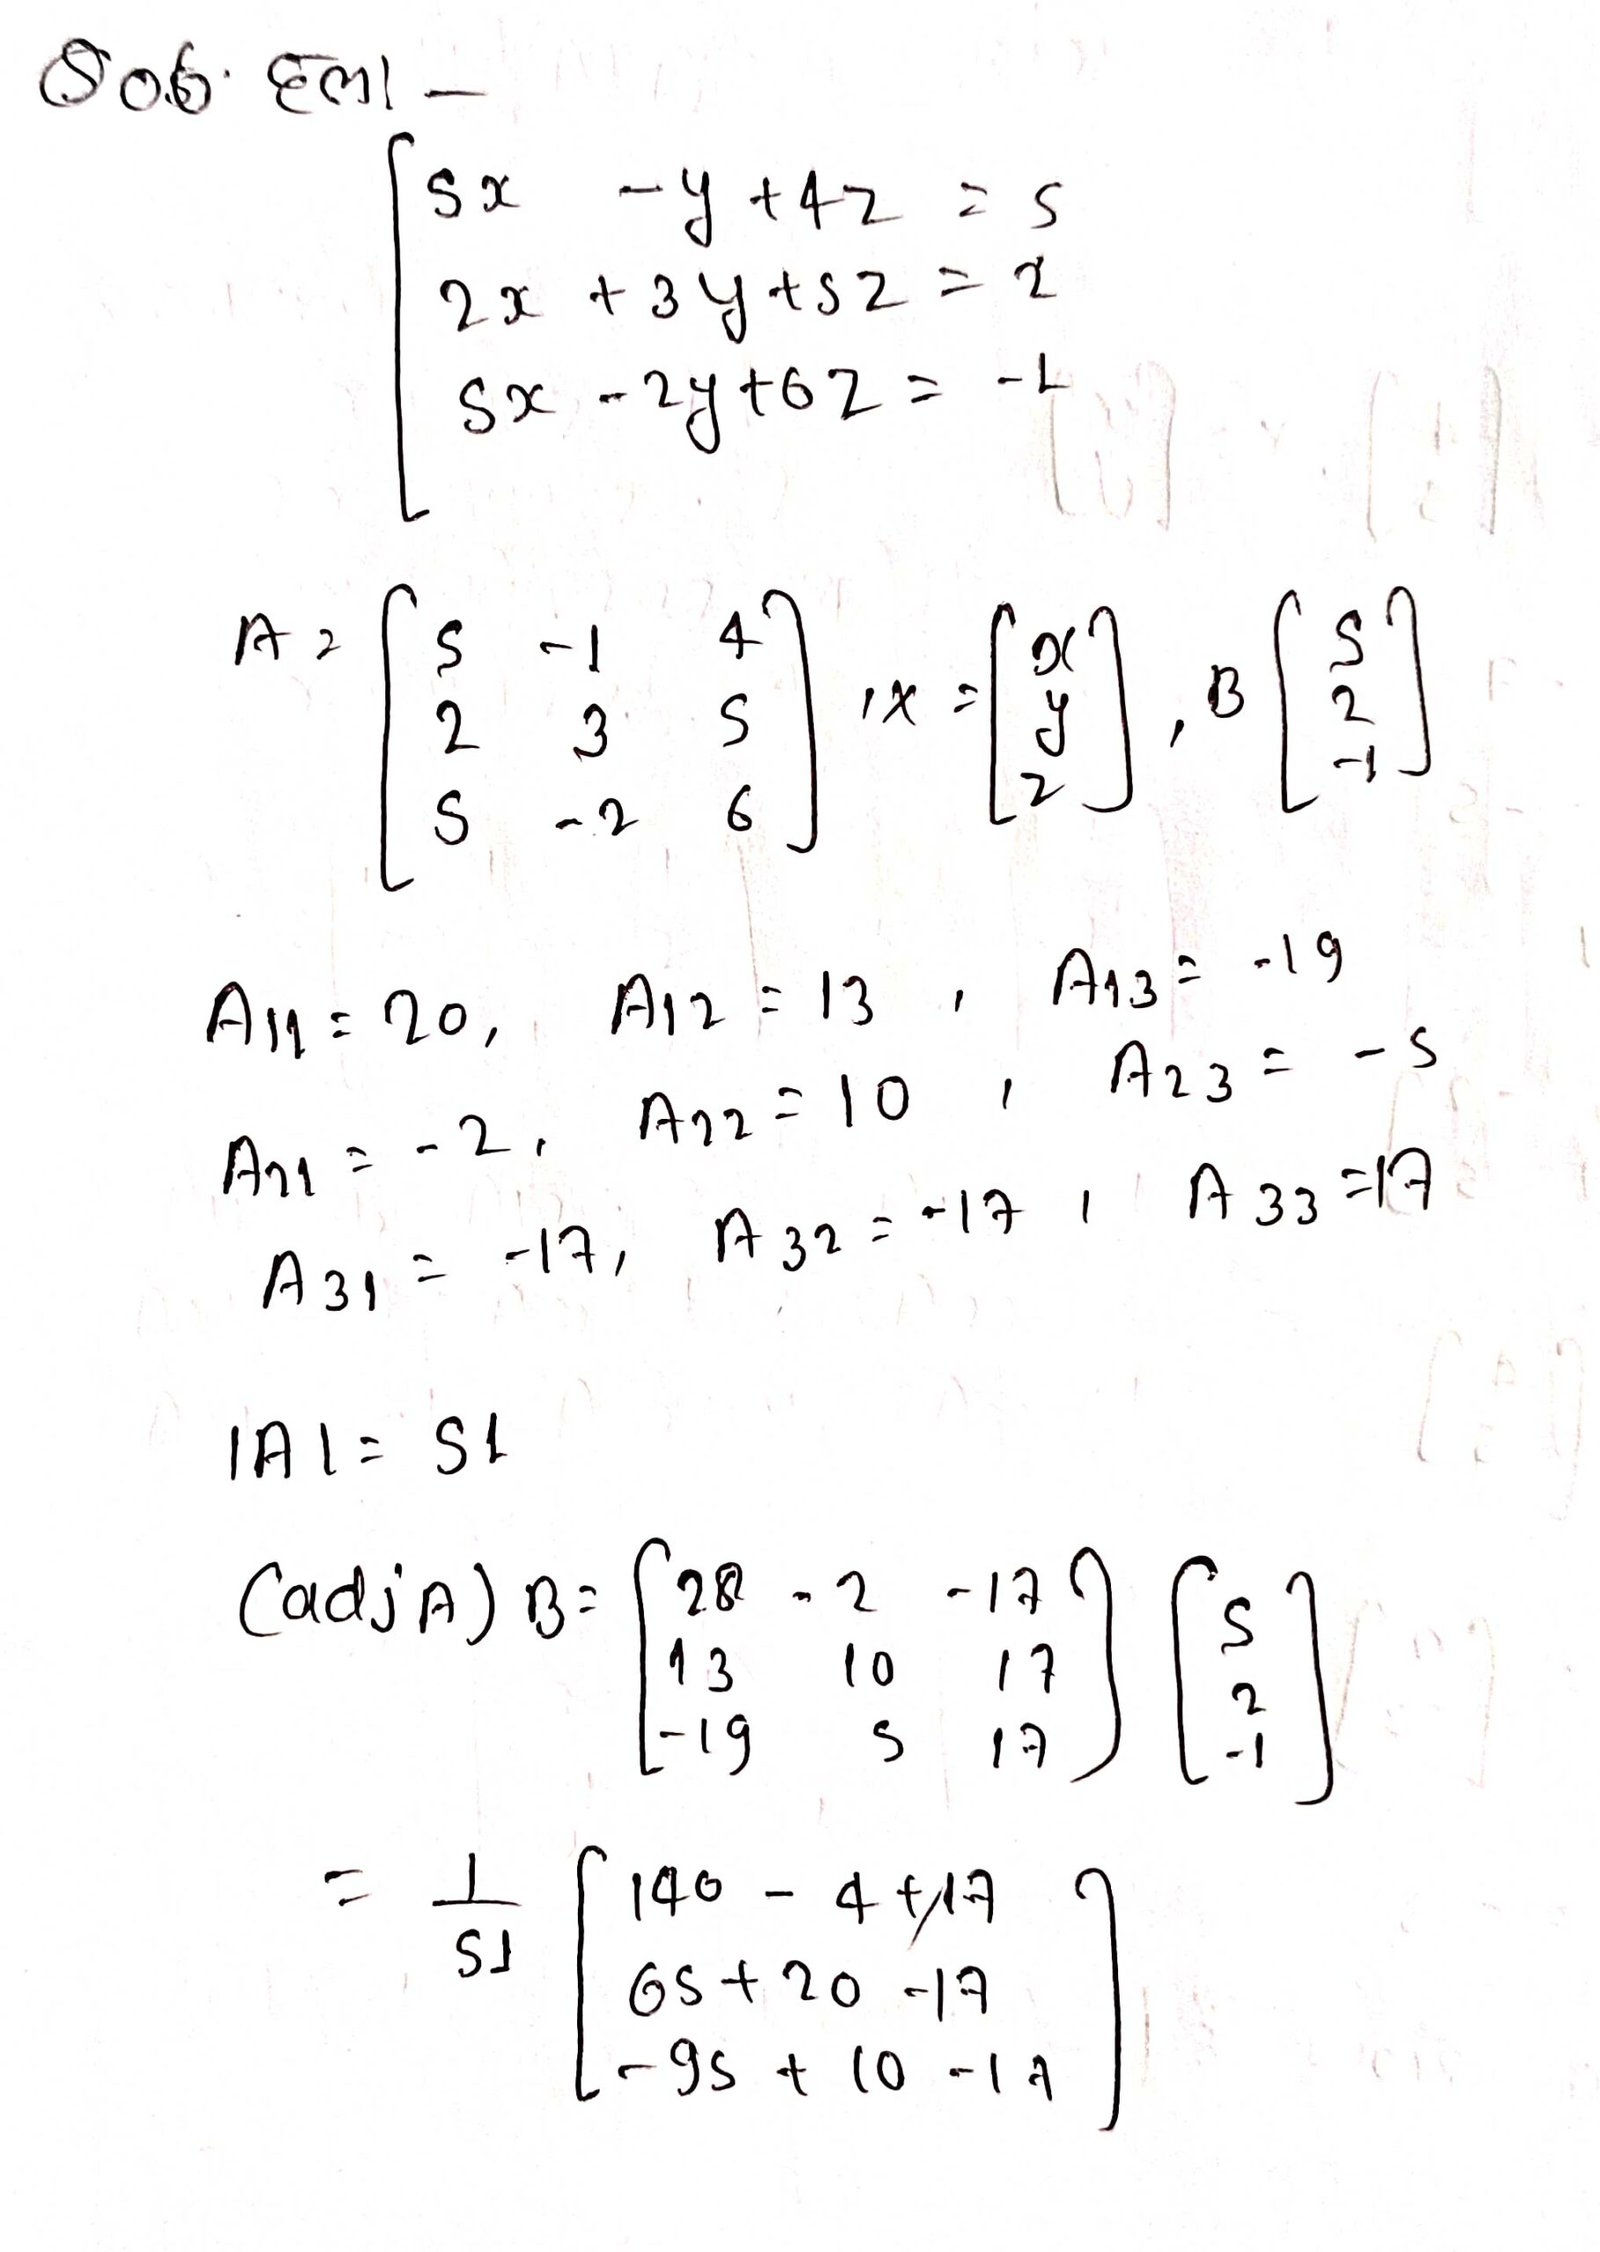 Q 06. हल।-
5x -y +4z = 5
2x +3y+5z = 2
5x -2y+6z = -1
A = [5 -1 4
2 3 5
5 -2 6] , X = [x
y
z] , B [5
2
-1]
A11 = 20, A12 = 13 , A13 = -19
A21 = -2, A22 = 10 , A23 = -5
A31 = -17, A32 = -17 , A33 = 17
|A| = 51
(adj A) B = [28 -2 -17
13 10 17
-19 5 17] [5
2
-1]
= 1/51 [140 - 4 +17
65 + 20 -17
-95 + 10 -17]